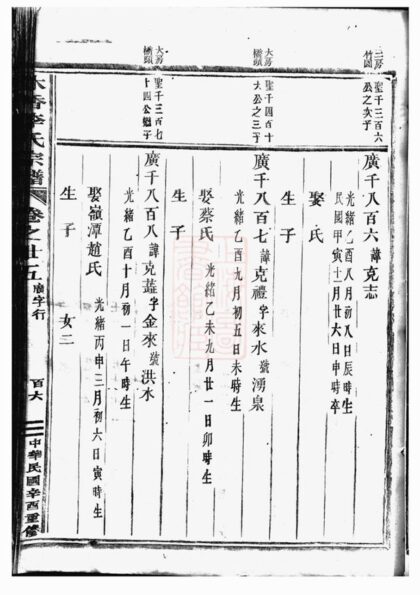 三房
竹園
聖千三百六
公之次子
廣千八百六 諱克志
光緒乙酉八月初八日辰時生
民國甲寅十二月廿六日申時卒
娶氏
生子
大房
橋頭
聖千四百十
大公之三子
廣千八百七 諱克禮 字來水 號湧泉
光緒乙酉九月初五日未時生
娶蔡氏 光緒乙未九月廿一日卯時生
生子
大房
橋頭
聖千三百七
十四公繼子
廣千八百八 諱克蓋 字金來 號洪水
光緒乙酉十月初一日午時生
娶嶺潭趙氏 光緒丙申三月初六日寅時生
生子 女二
木香李氏宗譜 卷之廿五 廣字行 百六 中華民國辛酉重修